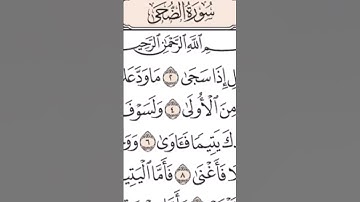 سُورَةُ الضُّحَىٰ
مِ ٱللَّهِ ٱلرَّحْمَٰنِ ٱلرَّحِي
لِ إِذَا سَجَىٰ ٢ مَا وَدَّعَ
مِنَ ٱلْأُولَىٰ ٤ وَلَسَوْفَ
كَ يَتِيمًا فَـَٔاوَىٰ ٦ وَوَ
لًا فَأَغْنَىٰ ٨ فَأَمَّا ٱلْيَتِي